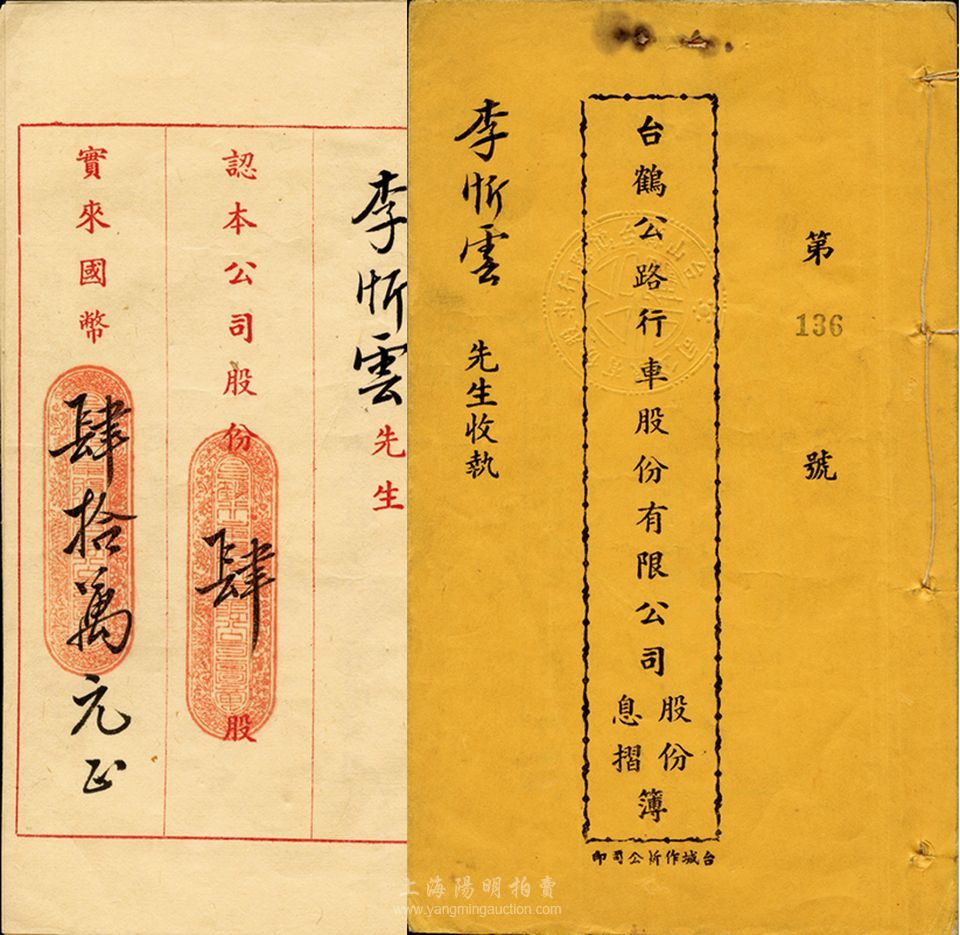 第 136 號
台鶴公路行車股份有限公司股份息摺簿
李忻雲 先生收執
台城作新公司印
李忻雲先生
認本公司股份肆股
實來國幣肆拾萬元正
上海陽明拍賣
www.yangmingauction.com